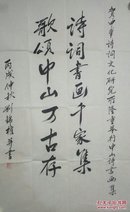 贺中华诗词文化研究所隆重举行中山诗书画集
诗词书画千家集
歌颂中山万古存
丙戌仲秋刘锦柱并书